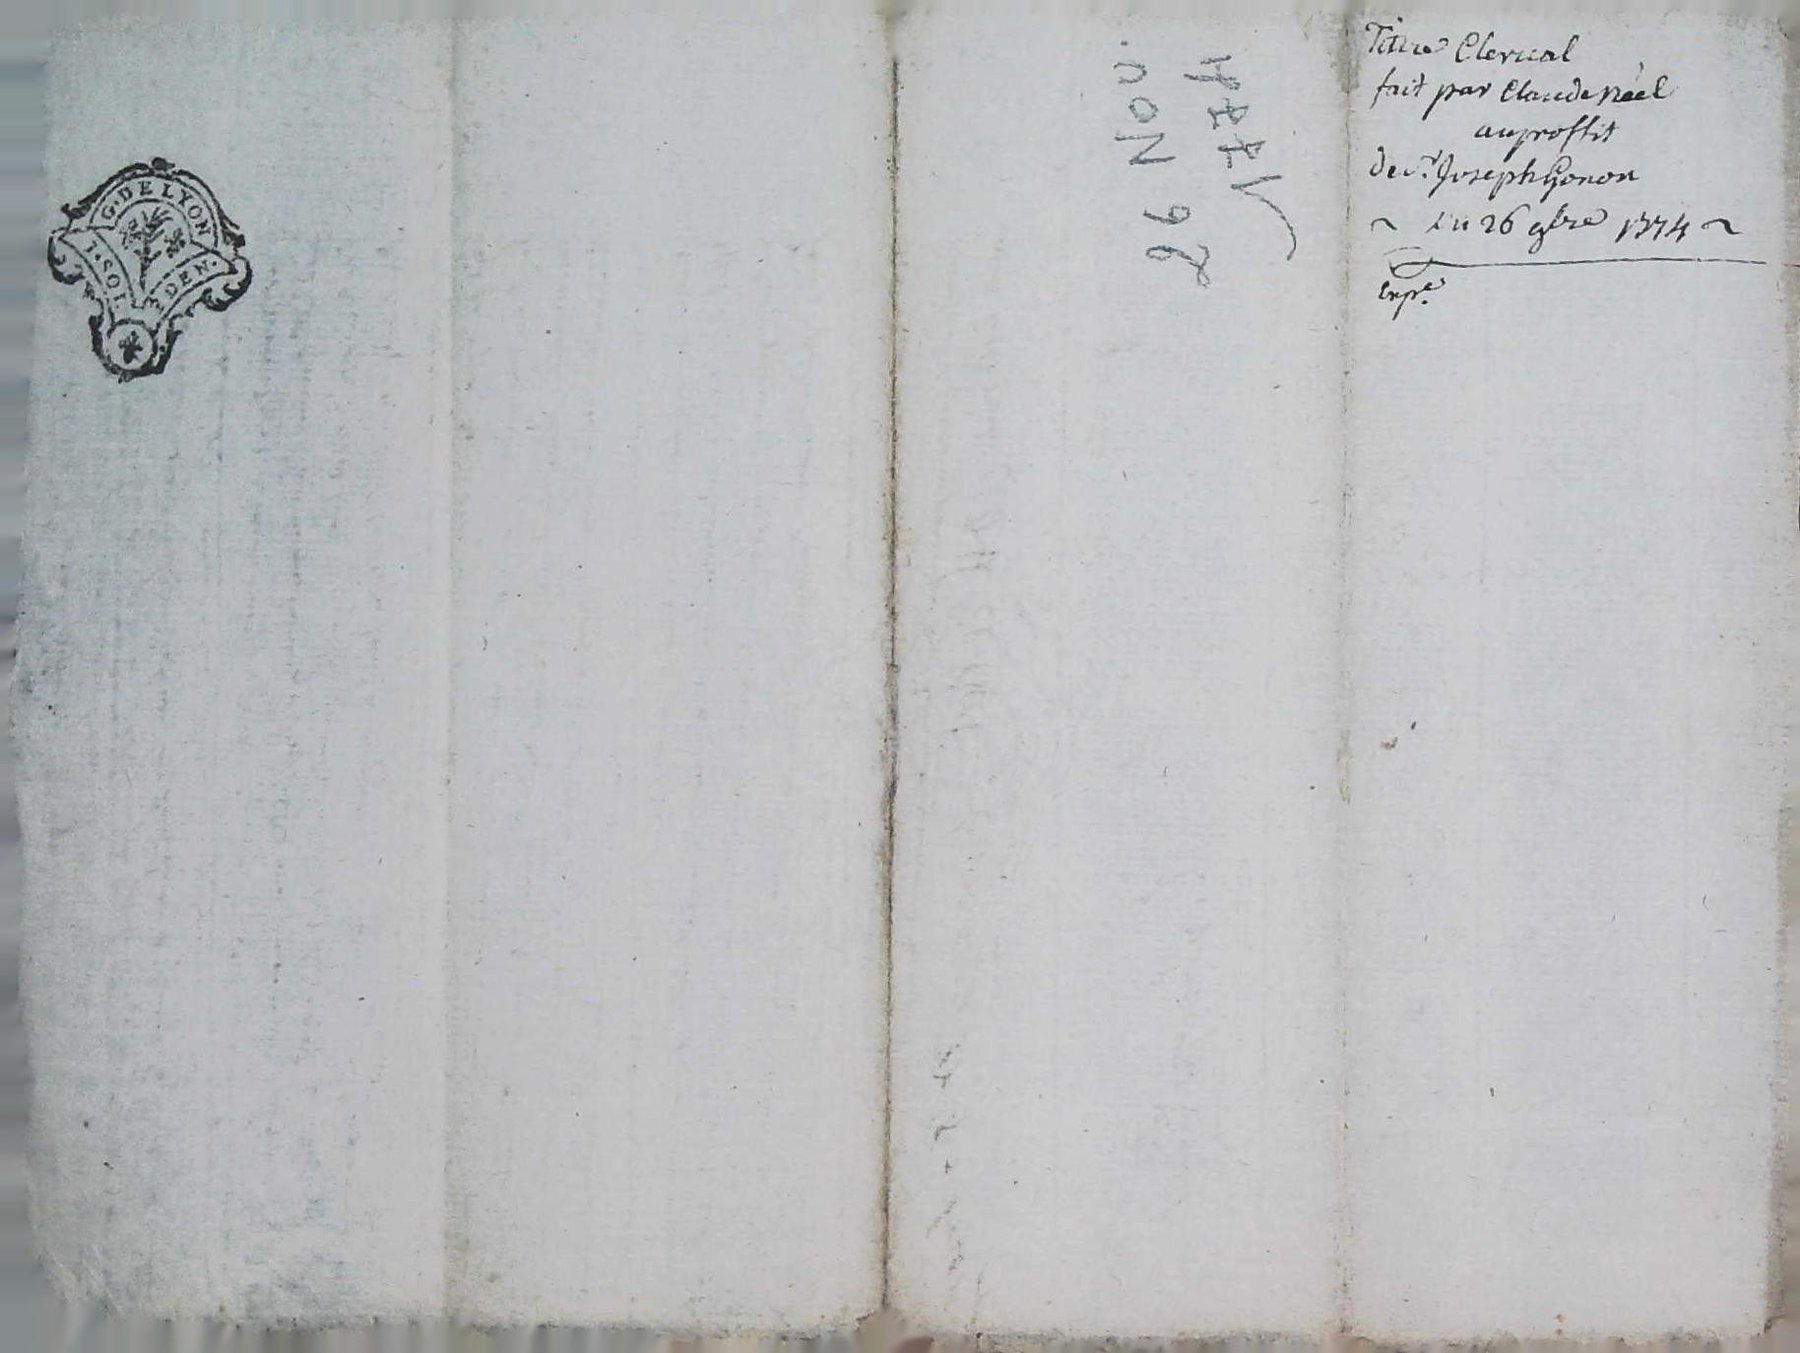 G. DE LYON
1. SOL DEN.
26 Nov.
1774
Titre Clerical
fait par Claude Néel
au proffit
de sr. Joseph Gonon
~ Du 26 9bre 1774 ~
Expe.